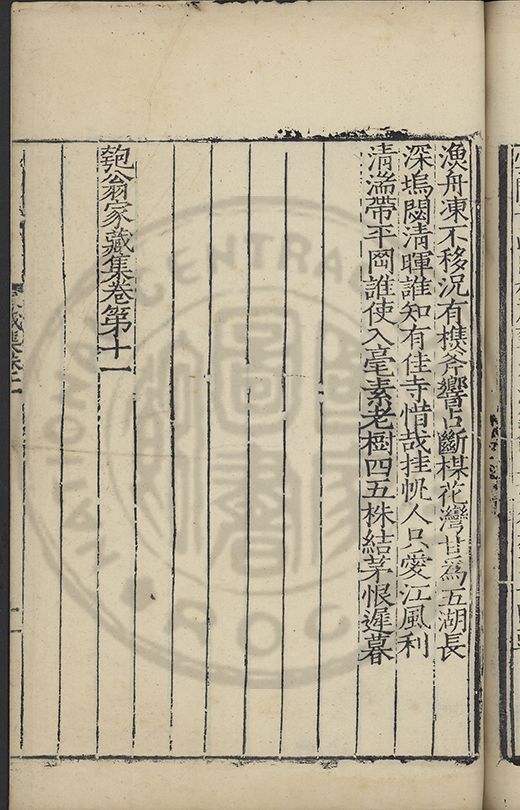 漁舟凍不移況有樵斧響占斷楳花灣甘為五湖長
深塢閟清暉誰知有佳寺惜哉挂帆人只愛江風利
清濰帶平岡誰使入毫素老樹四五株結茅恨遲暮
匏翁家藏集卷第十一